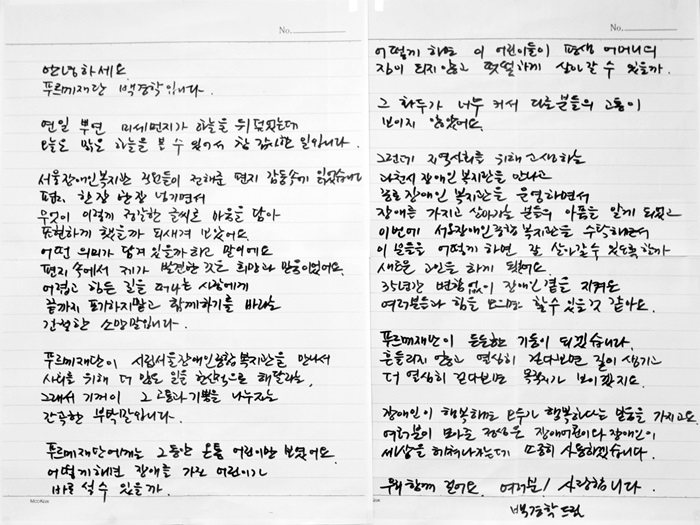 No.
안녕하세요
푸르메재단 백경학입니다.
연일 뿌연 미세먼지가 하늘을 뒤덮었는데
오늘은 맑은 하늘을 볼 수 있어서 참 감사한 일입니다.
서울장애인복지관 직원들이 전해준 편지 감동있게 읽었습니다
편지 한장 한장 넘기면서
무엇이 이렇게 정갈한 글씨로 마음을 담아
표현하게 했을까 되새겨 보았어요.
어떤 의미가 담겨있을까하고 말이에요
편지 속에서 제가 발견한 것은 희망과 믿음이었어요.
어렵고 힘든 길을 떠나는 사람에게
끝까지 포기하지말고 함께하기를 바라는
간절한 소망말입니다.
푸르메재단이 시립서울장애인종합복지관을 만나서
사회를 위해 더 많은 일을 헌신적으로 해달라는,
그래서 기꺼이 그 고통과 기쁨을 나누자는
간곡한 부탁말입니다.
푸르메재단에게는 그동안 온통 어린이만 보였어요.
어떻게하면 장애를 가진 어린이가
바로 설 수 있을까.
No.
어떻게 하면 이 어린이들이 평생 어머니의
짐이 되지 않고 떳떳하게 살아갈 수 있을까.
그 화두가 너무 커서 다른분들의 고통이
보이지 않았어요.
그런데 지역사회를 위해 고생하는
과천시장애인복지관을 만나고
종로장애인복지관을 운영하면서
장애를 가지고 살아가는 분들의 아픔을 알게 되었고
이번에 서울장애인종합복지관을 수탁하면서
이 분들을 어떻게 하면 잘 살아갈 수 있도록 할까
새로운 고민을 하게 됐어요.
35년간 변함없이 장애인 곁을 지켜온
여러분들과 힘을 모으면 할 수 있을것 같아요.
푸르메재단이 든든한 기둥이 되겠습니다.
흔들리지 않고 열심히 걷다보면 길이 생기고
더 열심히 걷다보면 목적지가 보이겠지요.
장애인이 행복해야 모두가 행복하다는 믿음을 가지고요.
여러분이 모아준 정성은 장애어린이와 장애인이
세상을 헤쳐나가는데 소중히 사용하겠습니다.
꼭 함께 걸어요. 여러분! 사랑합니다.
백경학 드림